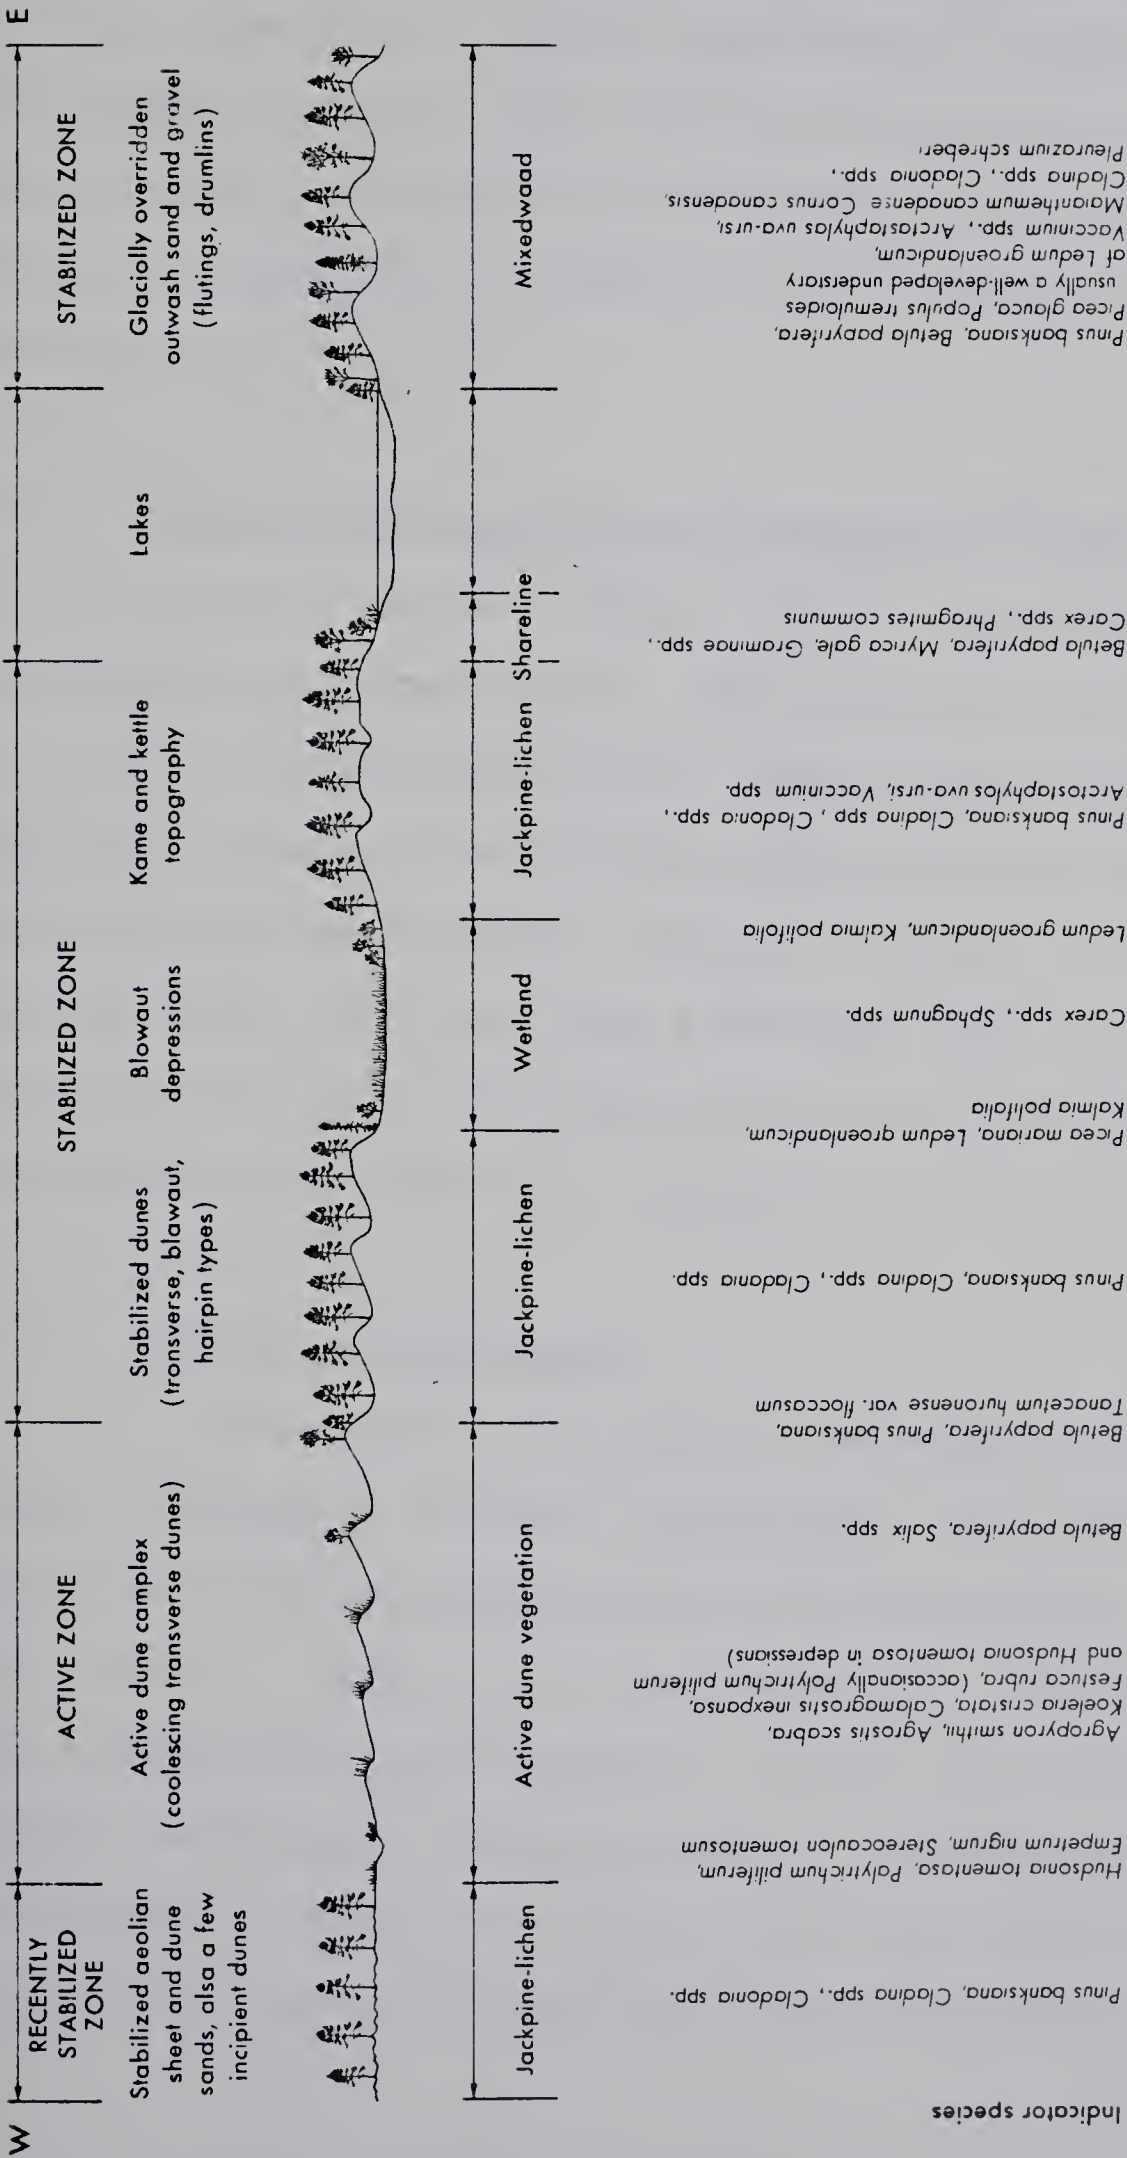 W
E
RECENTLY
STABILIZED
ZONE
ACTIVE ZONE
STABILIZED ZONE
STABILIZED ZONE
Stabilized aeolian
sheet and dune
sands, alsa a few
incipient dunes
Active dune camplex
(coolescing transverse dunes)
Stabilized dunes
(tronsverse, blawaut,
hairpin types)
Blowaut
depressions
Kame and kettle
topography
Lakes
Glaciolly overridden
outwash sand and gravel
(flutings, drumlins)
Jackpine-lichen
Active dune vegetation
Jackpine-lichen
Wetland
Jackpine-lichen
Shareline
Mixedwaad
Indicator species
Pinus banksiana, Cladina spp., Cladonia spp.
Hudsonia tomentasa, Palytrichum piliferum,
Empetrum nigrum, Stereocaulon tomentosum
Agropyron smithii, Agrostis scabra,
Koeleria cristata, Calamagrostis inexpansa,
Festuca rubra, (accasianally Polytrichum piliferum
and Hudsonia tomentosa in depressians)
Betula papyrifera, Salix spp.
Betula papyrifera, Pinus banksiana,
Tanacetum huronense var. floccasum
Pinus banksiana, Cladina spp., Cladania spp.
Picea mariana, Ledum groenlandicum,
Kalmia polifalia
Carex spp., Sphagnum spp.
Ledum groenlandicum, Kalmia polifolia
Pinus banksiana, Cladina spp , Cladonia spp.,
Arctostaphylos uva-ursi, Vaccinium spp.
Betula papyrifera, Myrica gale, Graminae spp.,
Carex spp., Phragmites communis
Pinus banksiana, Betula papyrifera,
Picea glauca, Populus tremuloides
usually a well-developed understary
af Ledum groenlandicum,
Vaccinium spp., Arctastaphylas uva-ursi,
Maianthemum canadense Cornus canadensis,
Cladina spp., Cladonia spp.,
Pleurazium schreberi